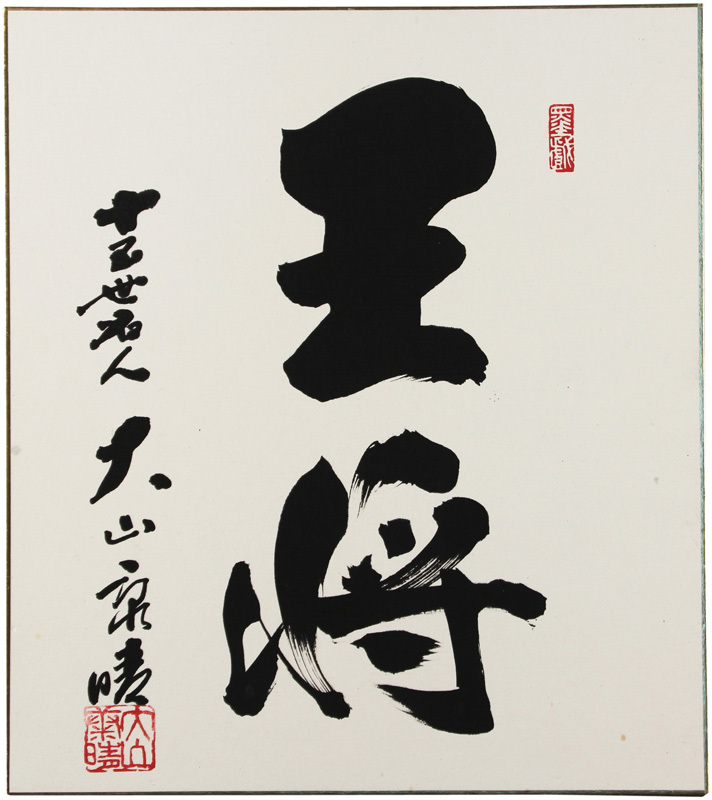 王将
十五世名人 大山康晴
大山
康晴